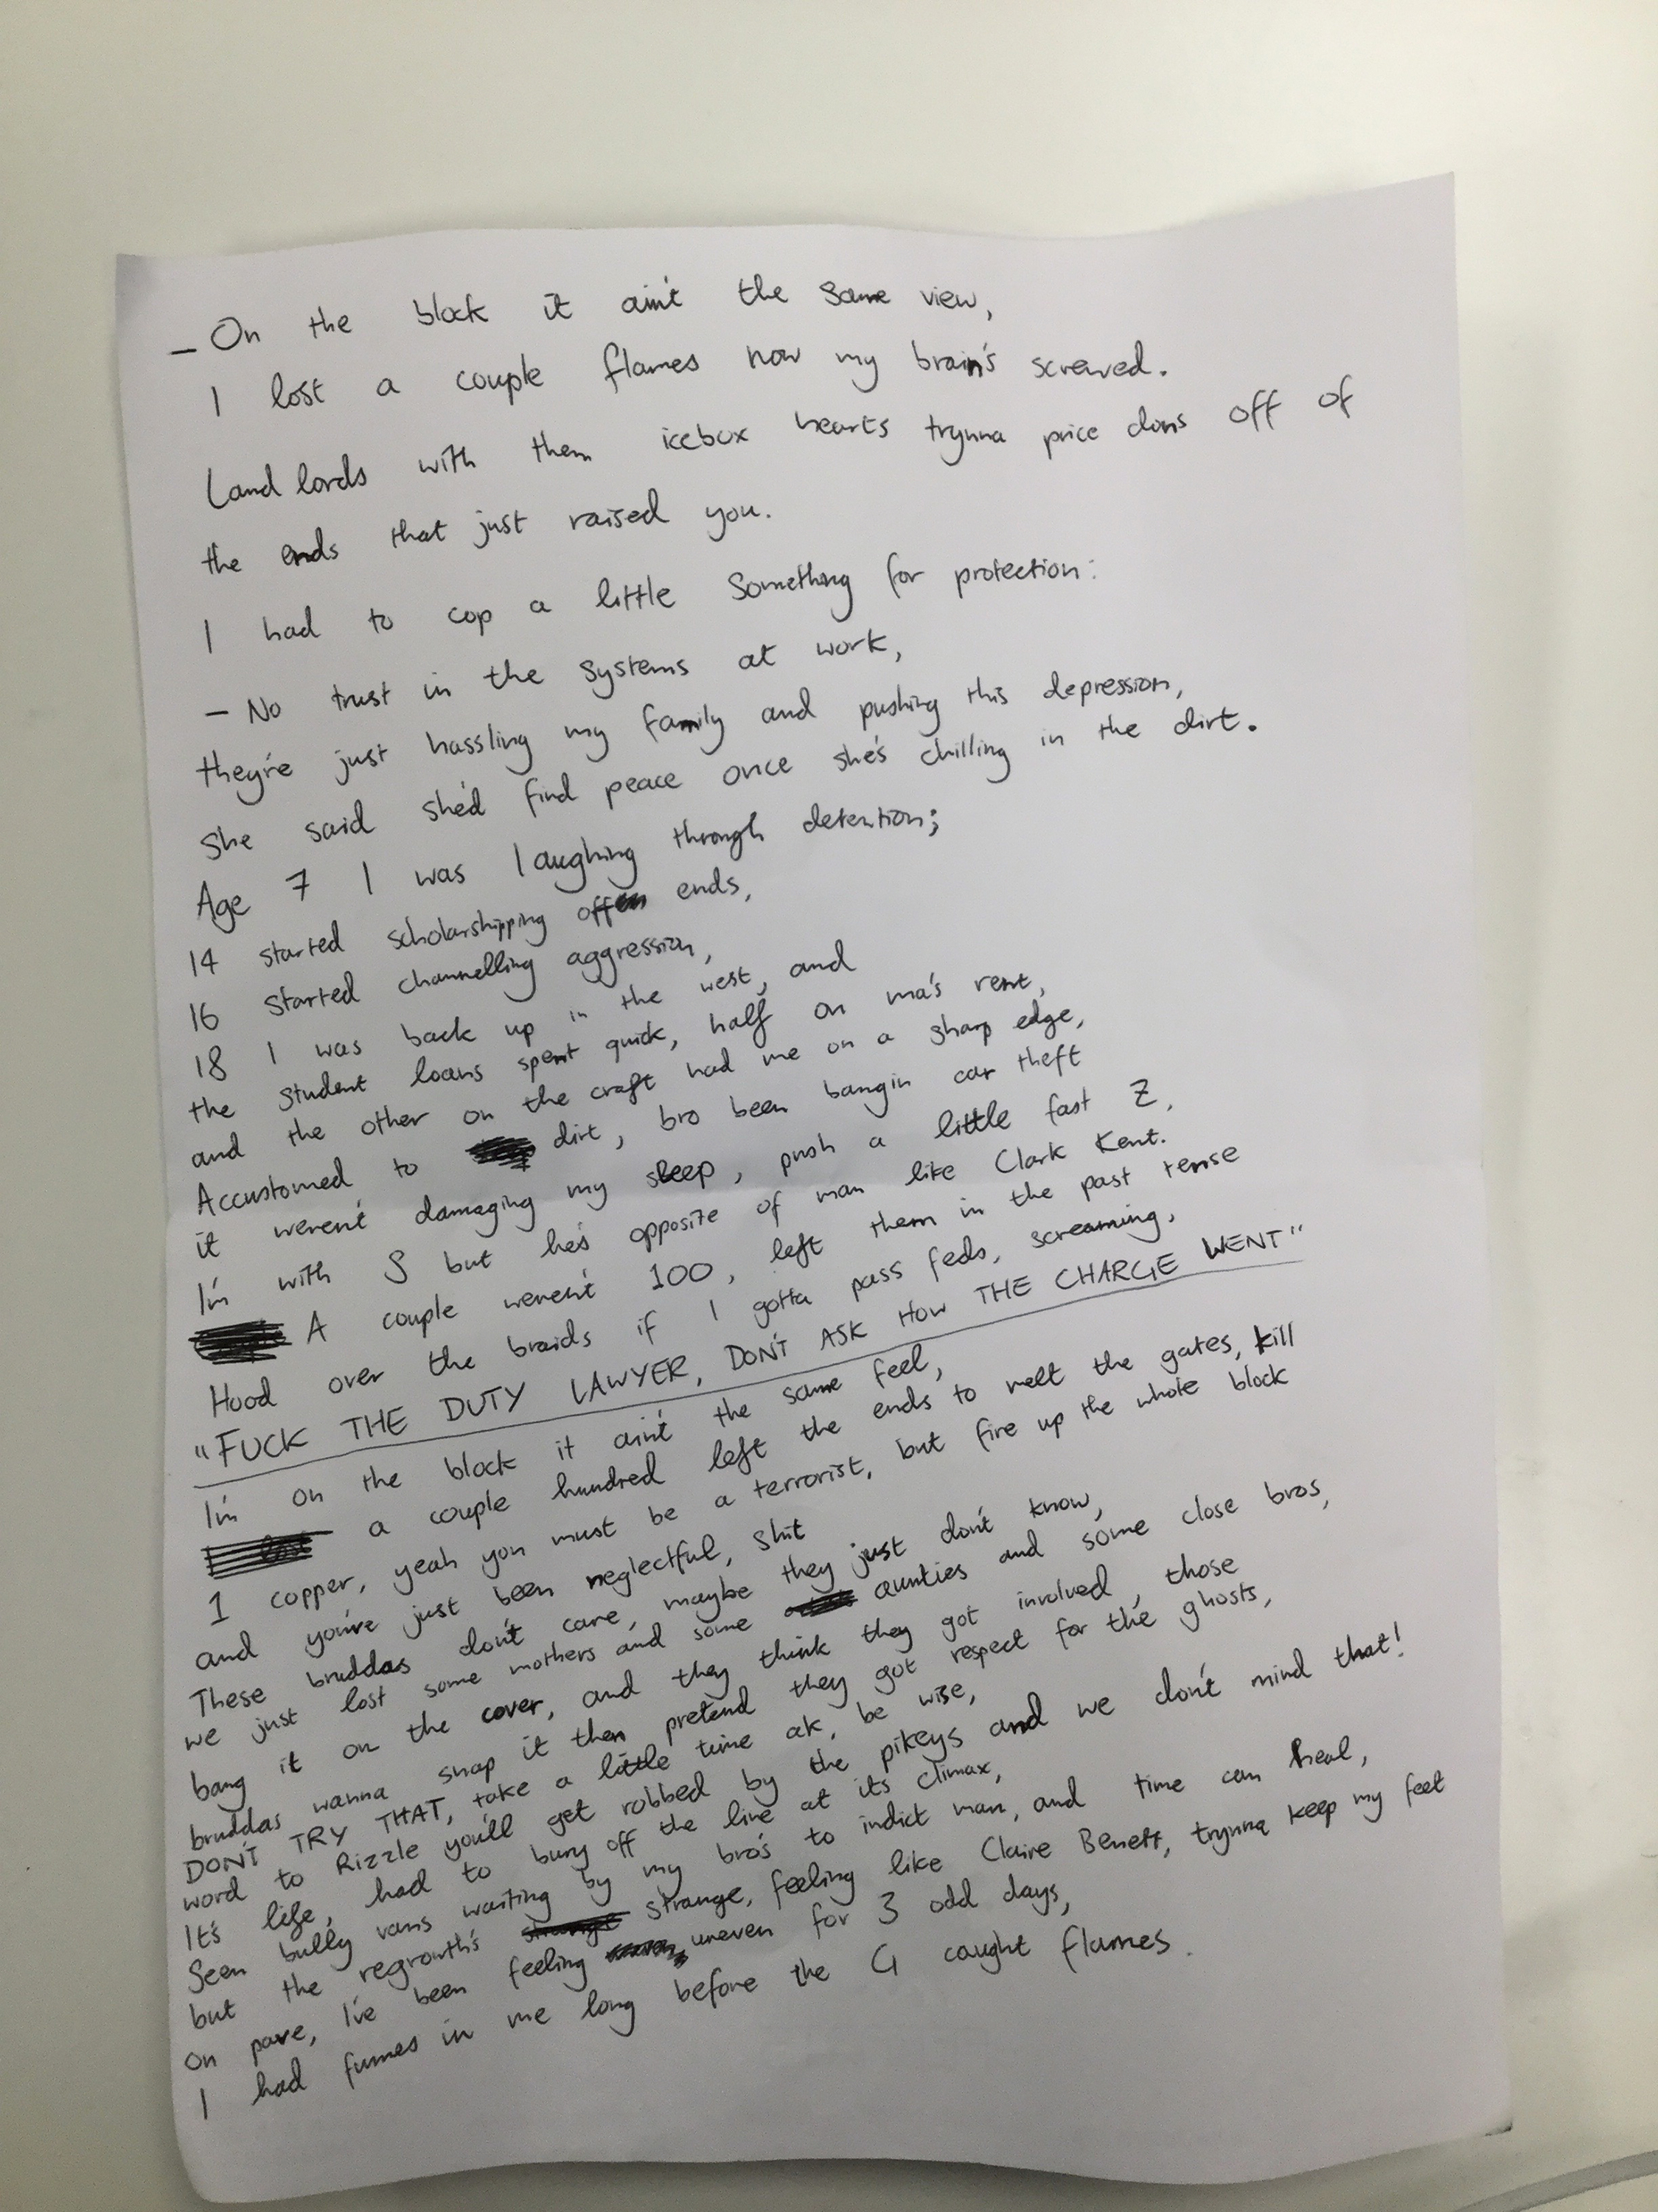 – On the block it ain't the same view,
I lost a couple flames now my brain's screwed.
Landlords with them icebox hearts trynna price dons off of
the ends that just raised you.
I had to cop a little something for protection:
– No trust in the systems at work,
they're just hassling my family and pushing this depression,
She said she'd find peace once she's chilling in the dirt.
Age 7 I was laughing through detention;
14 started scholarshipping off ends,
16 started channelling aggression,
18 I was back up in the west, and
the student loans spent quick, half on ma's rent,
and the other on the craft had me on a sharp edge,
Accustomed to dirt, bro been bangin car theft
it weren't damaging my sleep, push a little fast Z,
I'm with S but he's opposite of man like Clark Kent.
A couple weren't 100, left them in the past tense
Hood over the braids if I gotta pass feds, screaming,
"FUCK THE DUTY LAWYER, DON'T ASK HOW THE CHARGE WENT"
I'm on the block it ain't the same feel,
a couple hundred left the ends to melt the gates, kill
1 copper, yeah you must be a terrorist, but fire up the whole block
and you're just been neglectful, shit
These bruddas don't care, maybe they just don't know,
we just lost some mothers and some aunties and some close bros,
bang it on the cover, and they think they got involved, those
bruddas wanna snap it then pretend they got respect for the ghosts,
DON'T TRY THAT, take a little time ak, be wise,
word to Rizzle you'll get robbed by the pikeys and we don't mind that!
It's life, had to bury off the line at its climax,
Seen bully vans waiting by my bro's to indict man, and time can heal,
but the regrowth's strange, feeling like Claire Benett, trynna keep my feet
on pave, I've been feeling uneven for 3 odd days,
I had fumes in me long before the G caught flames.